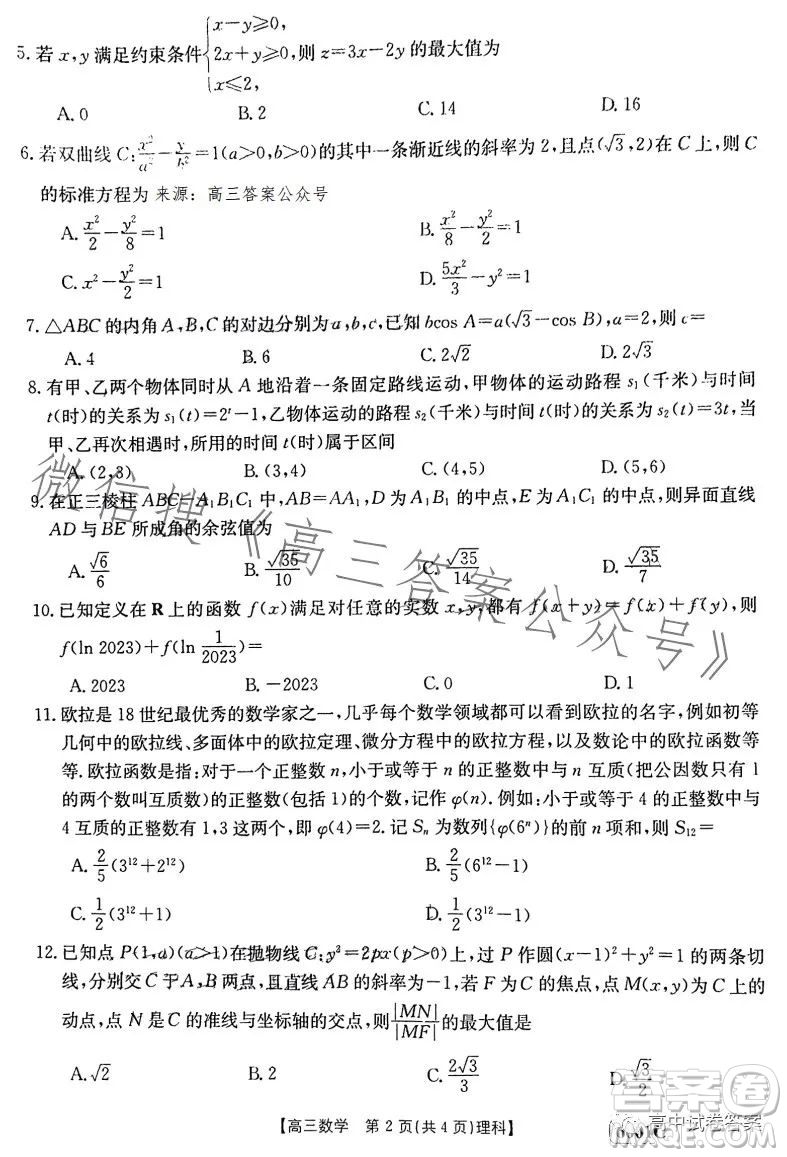 5. 若 x,y 满足约束条件 { x-y≥0, 2x+y≥0, x≤2, 则 z=3x-2y 的最大值为
A. 0 B. 2 C. 14 D. 16
6. 若双曲线 C: x²/a² - y²/b² =1(a>0,b>0)的其中一条渐近线的斜率为 2,且点(√3,2)在 C 上,则 C
的标准方程为 来源:高三答案公众号
A. x²/2 - y²/8 =1 B. x²/8 - y²/2 =1
C. x² - y²/2 =1 D. 5x²/3 - y² =1
7. △ABC 的内角 A,B,C 的对边分别为 a,b,c,已知 bcos A=a(√3-cos B),a=2,则 c=
A. 4 B. 6 C. 2√2 D. 2√3
8. 有甲、乙两个物体同时从 A 地沿着一条固定路线运动,甲物体的运动路程 s₁(千米)与时间
t(时)的关系为 s₁(t)=2ᵗ-1,乙物体运动的路程 s₂(千米)与时间 t(时)的关系为 s₂(t)=3t,当
甲、乙再次相遇时,所用的时间 t(时)属于区间
A. (2,3) B. (3,4) C. (4,5) D. (5,6)
9. 在正三棱柱 ABC-A₁B₁C₁ 中,AB=AA₁,D 为 A₁B₁ 的中点,E 为 A₁C₁ 的中点,则异面直线
AD 与 BE 所成角的余弦值为
A. √6/6 B. √35/10 C. √35/14 D. √35/7
10. 已知定义在 R 上的函数 f(x)满足对任意的实数 x,y,都有 f(x+y)=f(x)+f(y),则
f(ln 2023)+f(ln 1/2023)=
A. 2023 B. -2023 C. 0 D. 1
11. 欧拉是 18 世纪最优秀的数学家之一,几乎每个数学领域都可以看到欧拉的名字,例如初等
几何中的欧拉线、多面体中的欧拉定理、微分方程中的欧拉方程,以及数论中的欧拉函数等
等.欧拉函数是指:对于一个正整数 n,小于或等于 n 的正整数中与 n 互质(把公因数只有 1
的两个数叫互质数)的正整数(包括 1)的个数,记作 φ(n).例如:小于或等于 4 的正整数中与
4 互质的正整数有 1,3 这两个,即 φ(4)=2.记 Sₙ 为数列{φ(6ⁿ)}的前 n 项和,则 S₁₂=
A. 2/5(3¹²+2¹²) B. 2/5(6¹²-1)
C. 1/2(3¹²+1) D. 1/2(3¹²-1)
12. 已知点 P(1,a)(a>1)在抛物线 C:y²=2px(p>0)上,过 P 作圆(x-1)²+y²=1 的两条切
线,分别交 C 于 A,B 两点,且直线 AB 的斜率为-1,若 F 为 C 的焦点,点 M(x,y)为 C 上的
动点,点 N 是 C 的准线与坐标轴的交点,则 |MN|/|MF| 的最大值是
A. √2 B. 2 C. 2√3/3 D. √3/2
【高三数学 第 2 页(共 4 页)理科】
微信搜《高三答案公众号》
答案圈
高中试卷答案